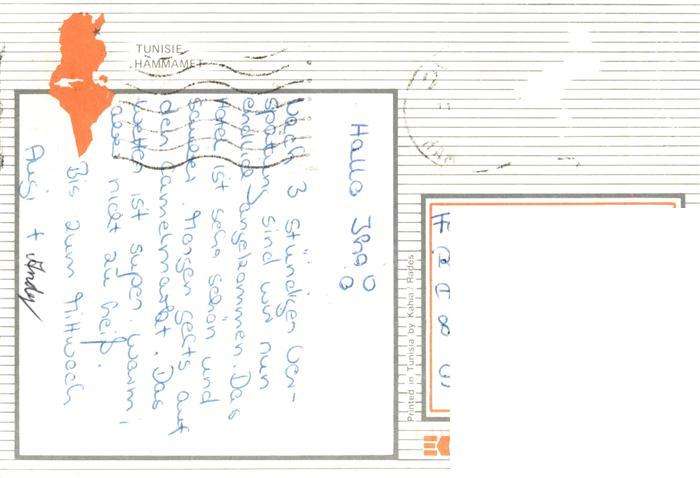 TUNISIE
HAMMAMET
Hallo Ihr
Nach 3 stündiger Ver-
spätung sind wir nun
endlich angekommen. Das
Hotel ist sehr schön und
sauber. Morgen gehts auf
den Camelmarkt. Das
Wetter ist super. Warm,
aber nicht zu heiß.
Bis zum Mittwoch
Andy
Printed in Tunisia by Kahia / Rades